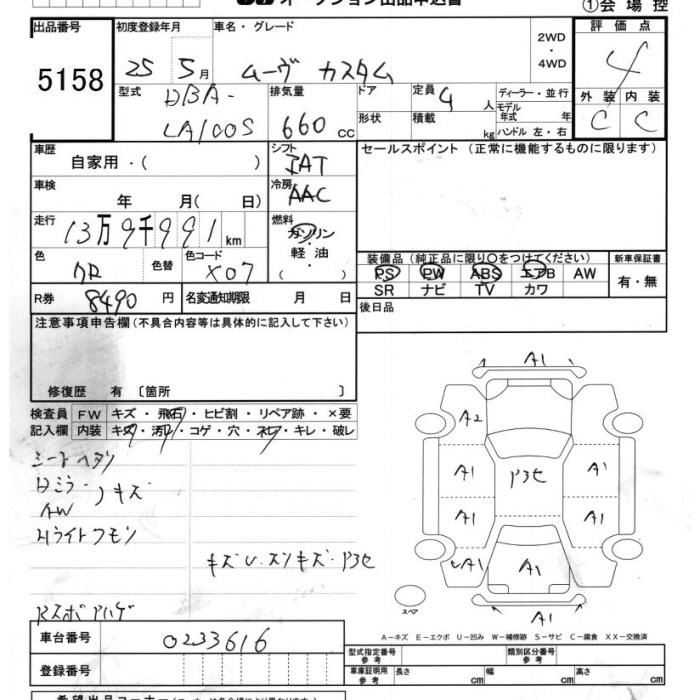 オークション出品申込書
①会場控
出品番号 初度登録年月 車名・グレード 評価点
5158 25 5月 ムーヴ カスタム 2WD・4WD 4
型式 DBA-LA100S 排気量 660cc ドア 定員 4人 ディーラー・並行 外装 内装
形状 積載 kg モデル年式 年 ハンドル 左・右 C C
車歴 自家用・( ) シフト IAT セールスポイント (正常に機能するものに限ります)
車検 年 月( 日) 冷房 AAC
走行 13万9千991km 燃料 ガソリン・軽油・( )
色 色替 色コード X07
装備品 (純正品に限り○をつけてください) 新車保証書
PS PW ABS エアB AW 有・無
SR ナビ TV カワ
R券 8490円 名変通知期限 月 日 後日品
注意事項申告欄(不具合内容等は具体的に記入して下さい)
修復歴 有 〔箇所 〕
検査員 FW キズ・飛石・ヒビ割・リペア跡・×要
記入欄 内装 キズ・汚れ・コゲ・穴・スレ・キレ・破レ
シートヘタリ
Dミラー キズ
AW
Hライトクモリ
キズ U.スリキズ・P3セ
RスポAハゲ
A1
A2
A1 P3セ A1
A1 A1
UA1 A1 A1
A1
スペア
A-キズ E-エクボ U-凹み W-補修跡 S-サビ C-腐食 XX-交換済
車台番号 0233616
型式指定番号 参考 類別区分番号 参考
登録番号
車庫証明用 参考 長さ cm 幅 cm 高さ cm
希望出品コーナー